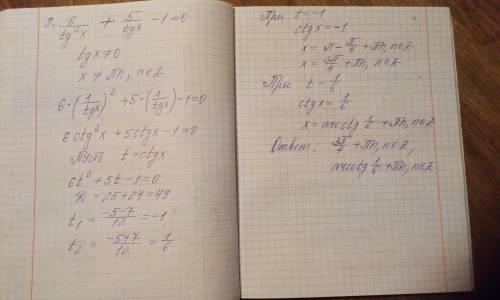 8. 6/tg²x + 5/tgx − 1 = 0
tgx ≠ 0
x ≠ πn, n∈Z
6·(1/tgx)² + 5·(1/tgx) − 1 = 0
6ctg²x + 5ctgx − 1 = 0
Пусть t = ctgx
6t² + 5t − 1 = 0
D = 25 + 24 = 49
t₁ = (−5−7)/12 = −1
t₂ = (−5+7)/12 = 1/6
При t = −1
ctgx = −1
x = π − π/4 + πn, n∈Z
x = 3π/4 + πn, n∈Z
При t = 1/6
ctgx = 1/6
x = arcctg 1/6 + πn, n∈Z
Ответ: 3π/4 + πn, n∈Z,
arcctg 1/6 + πn, n∈Z